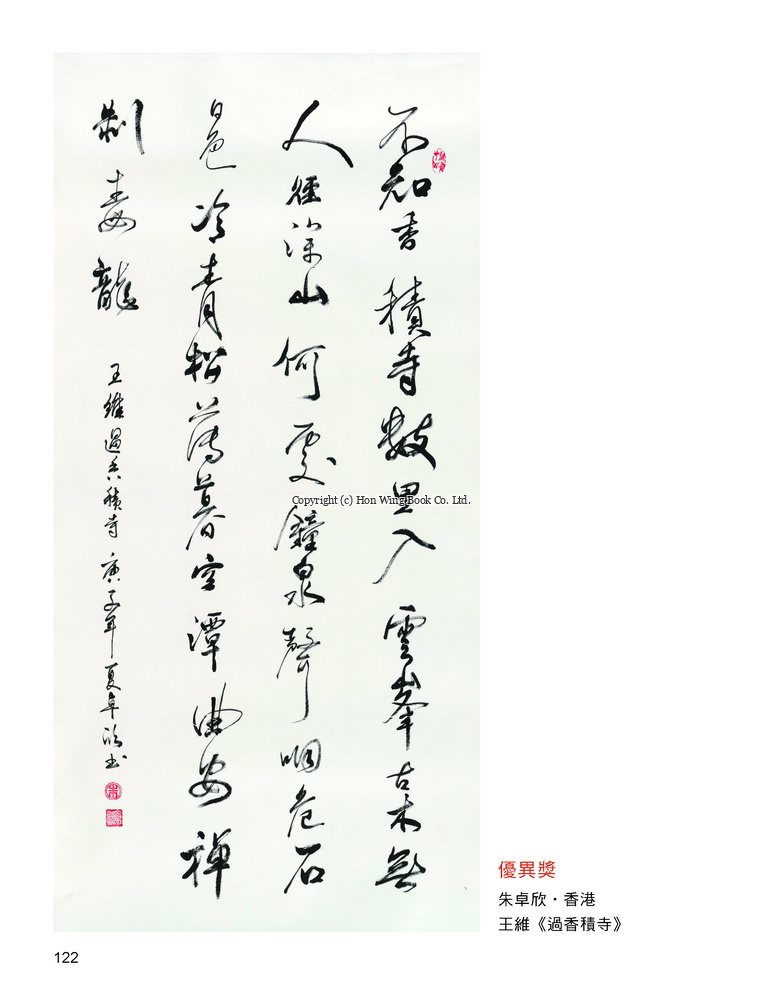 不知香積寺數里入雲峯古木無
人徑深山何處鐘泉聲咽危石
日色冷青松薄暮空潭曲安禪
制毒龍
王維過香積寺 庚子年夏卓欣书
Copyright (c) Hon Wing Book Co. Ltd.
優異獎
朱卓欣・香港
王維《過香積寺》
122